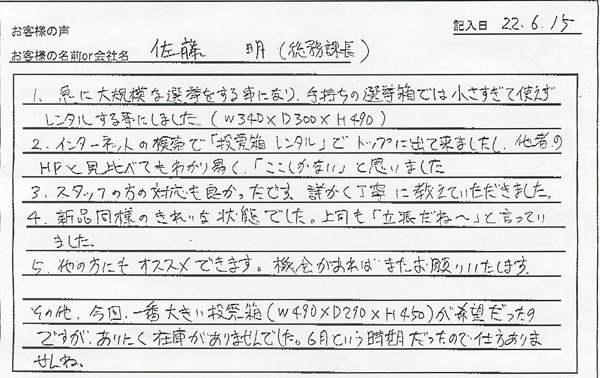 お客様の声
記入日 22.6.15
お客様の名前or会社名 佐藤 明 (総務課長)
1. 急に大規模な選挙をする事になり、手持ちの選挙箱では小さすぎて使えず
レンタルする事にしました。(W340×D300×H490)
2. インターネットの検索で「投票箱 レンタル」でトップに出て来ましたし、他者の
HPと見比べてもわかり易く、「ここしかない」と思いました
3. スタッフの方の対応も良かったです。詳かく丁寧に教えていただきました。
4. 新品同様のきれいな状態でした。上司も「立派だね〜」と言ってい
ました。
5. 他の方にもオススメできます。機会があればまたお願いいたします。
その他、今回、一番大きい投票箱(W490×D290×H450)が希望だったの
ですが、あいにく在庫がありませんでした。6月という時期だったので仕方ありま
せんね。